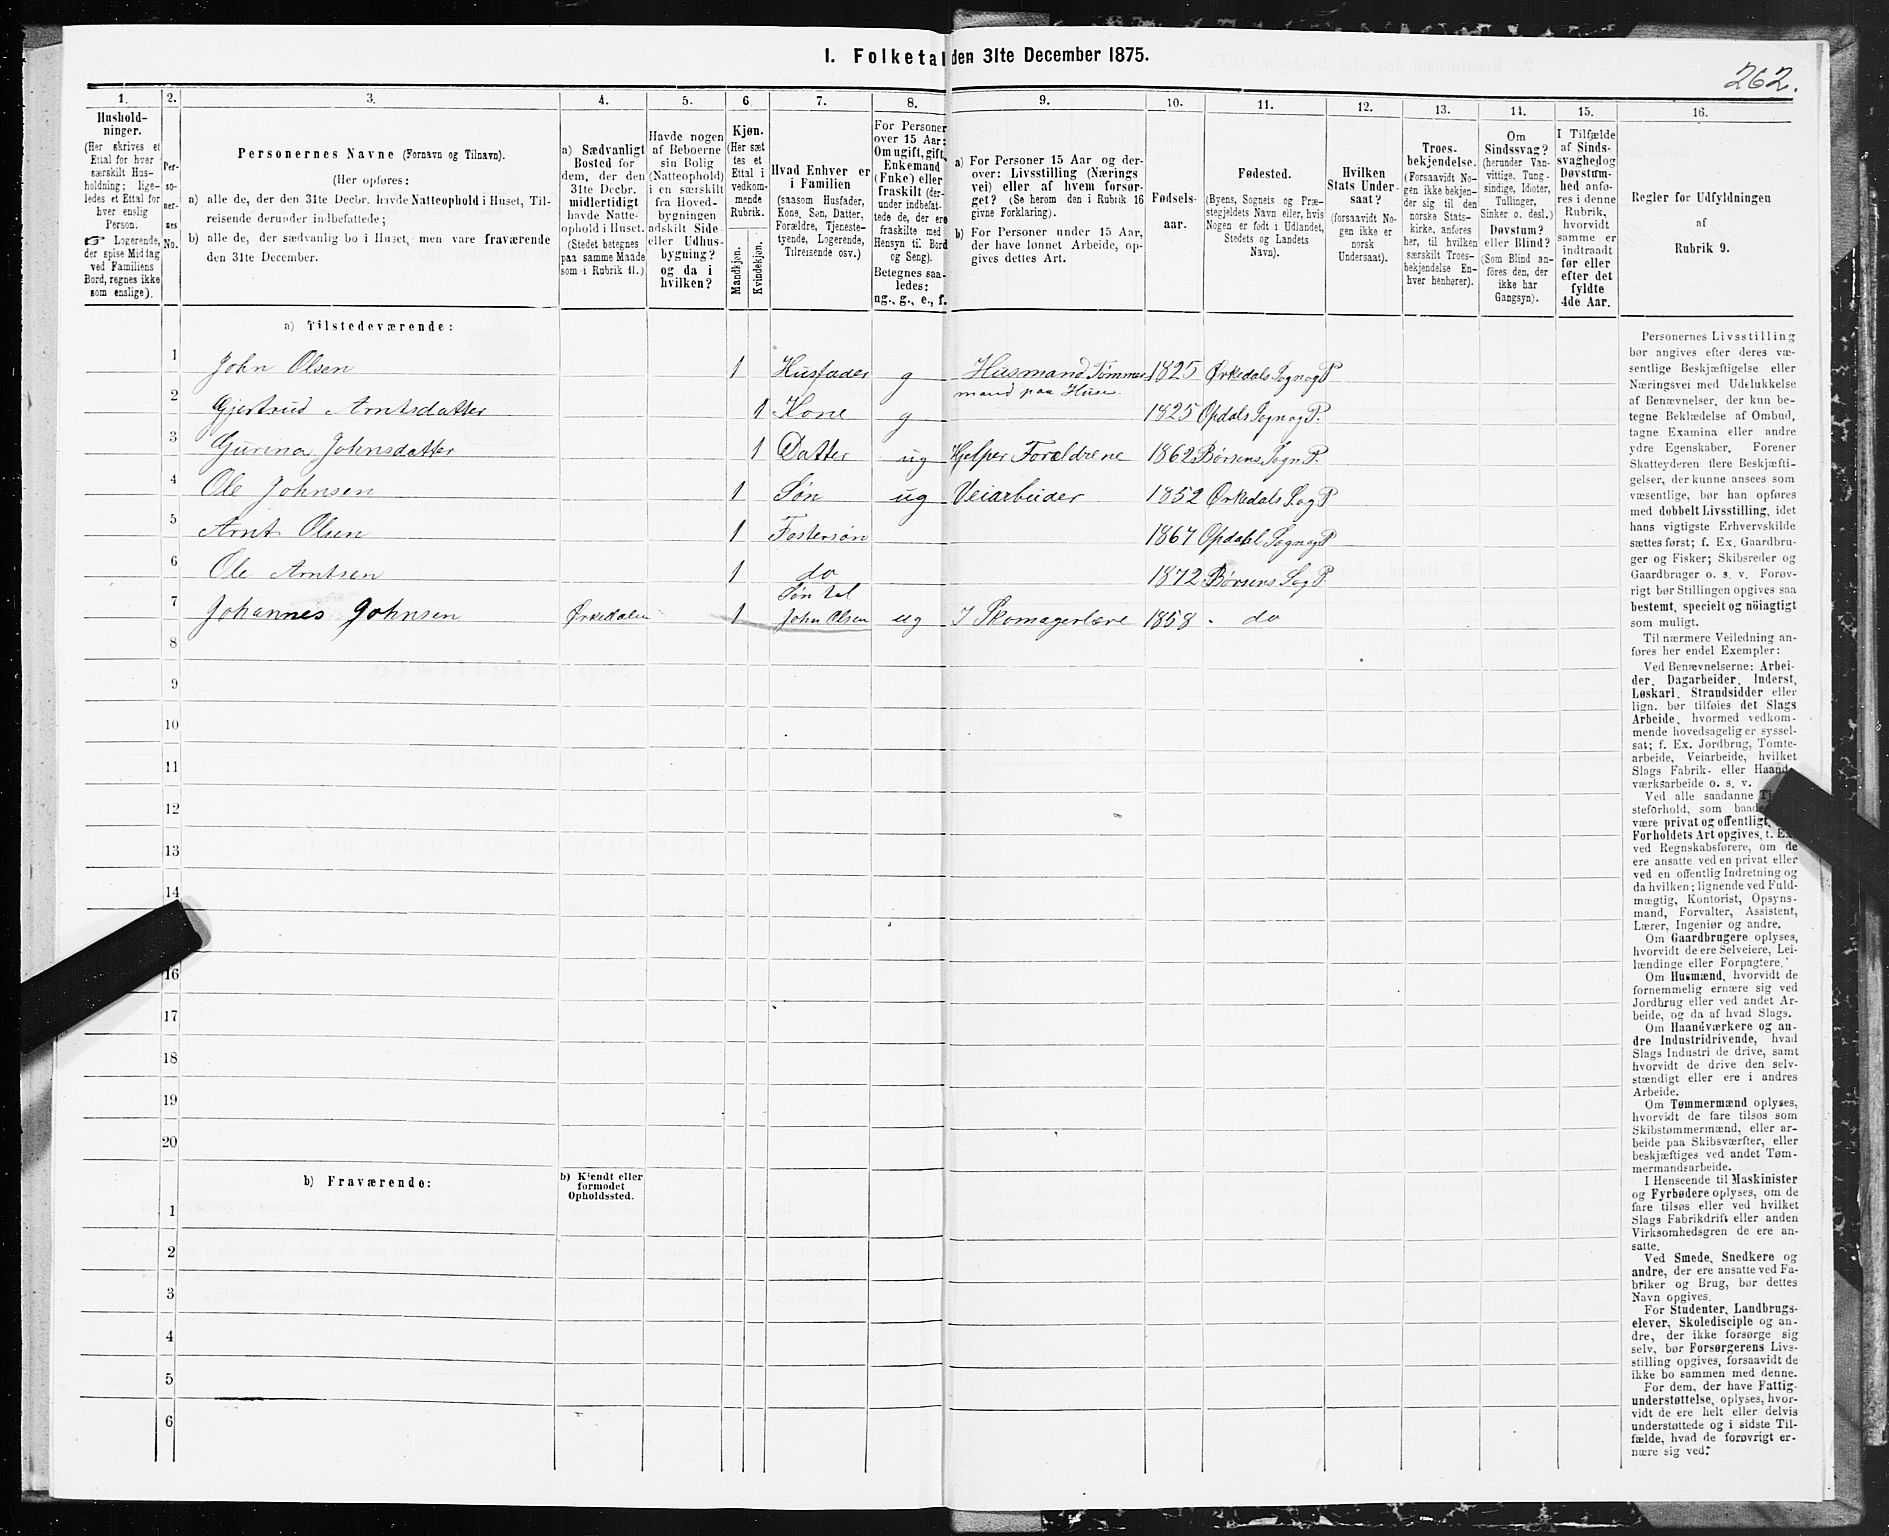 1. Folketal den 31te December 1875.
262.
1. 2. 3. 4. 5. 6. 7. 8. 9. 10. 11. 12. 13. 14. 15. 16.
Husholdninger.
(Her skrives et
Ettal for hver
særskilt Husholdning;
ligeledes et Ettal for
hver enslig
Person.
☞ Logerende,
der spise Middag
ved Familiens
Bord, regnes ikke
som enslige).
Personernes No.
Personernes Navne (Fornavn og Tilnavn).
(Her opføres:
a) alle de, der den 31te Decbr. havde Natteophold i Huset, Tilreisende derunder indbefattede;
b) alle de, der sædvanlig bo i Huset, men vare fraværende
den 31te December.
a) Sædvanligt
Bosted for
dem, der den
31te Decbr.
midlertidigt
havde Natteophold i Huset.
(Stedet betegnes
paa samme Maade
som i Rubrik 11.)
Havde nogen
af Beboerne
sin Bolig
(Natteophold)
i en særskilt
fra Hovedbygningen
adskilt Side-
eller Udhusbygning?
og da i
hvilken?
Kjøn.
(Her sættes et
Ettal i
vedkommende
Rubrik.
Mandkjøn.
Kvindekjøn.
Hvad Enhver er
i Familien
(saasom Husfader,
Kone, Søn, Datter,
Forældre, Tjenestetyende, Logerende,
Tilreisende osv.)
For Personer
over 15 Aar:
Om ugift, gift,
Enkemand
(Enke) eller
fraskilt (derunder indbefattede de, der ere
fraskilte med
Hensyn til Bord
og Seng).
Betegnes saaledes:
ug., g., e., f.
a) For Personer 15 Aar og derover: Livsstilling (Næringsvei) eller af hvem forsørget? (Se herom den i Rubrik 16
givne Forklaring).
b) For Personer under 15 Aar,
der have lønnet Arbeide, opgives dettes Art.
Fødselsaar.
Fødested.
(Byens, Sognets og Præstegjeldets Navn eller, hvis
Nogen er født i Udlandet,
Stedets og Landets
Navn).
Hvilken
Stats Undersaat?
(forsaavidt Nogen ikke er
norsk
Undersaat).
Troesbekjendelse.
(Forsaavidt Nogen ikke bekjender sig til den
norske Statskirke, anføres
her, til hvilken
særskilt Troesbekjendelse Enhver henhører).
Om
Sindssvag?
(herunder Vanvittige, Tungsindige, Idioter,
Tullinger,
Sinker o. desl.)
Døvstum?
eller Blind?
(Som Blind anføres den, der
ikke har
Gangsyn).
I Tilfælde
af Sindssvaghed og
Døvstumhed anføres i denne
Rubrik,
hvorvidt
samme er
indtraadt
før eller
efter det
fyldte
4de Aar.
Regler for Udfyldningen
af
Rubrik 9.
a) Tilstedeværende:
1 John Olsen 1 Husfader g Husmand Tømmermand paa Huse. 1825 Ørkedals Sogn og P
2 Gjertrud Arntsdatter 1 Kone g 1825 Opdals Sogn og P.
3 Gurina Johnsdatter 1 Datter ug Hjelper Forældrene 1862 Børsens Sogn P.
4 Ole Johnsen 1 Søn ug Veiarbeider 1852 Ørkedals S. og P
5 Arnt Olsen 1 Fostersøn 1867 Opdahl Sogn og P
6 Ole Arntsen 1 do 1872 Børsens S. og P.
7 Johannes Johnsen Ørkedalen 1 Søn tal John Olsen ug I Skomagerlære 1858 do
8
9
10
11
12
13
14
16
17
18
19
20
b) Fraværende:
b) Kjendt eller
formodet
Opholdssted.
1
2
3
4
5
6
Personernes Livsstilling
bør angives efter deres væsentlige Beskjæftigelse eller
Næringsvei med Udelukkelse
af Benævnelser, der kun betegne Beklædelse af Ombud,
tagne Examina eller andre
ydre Egenskaber. Forener
Skatteyderen flere Beskjæftigelser, der kunne ansees som
væsentlige, bør han opføres
med dobbelt Livsstilling, idet
hans vigtigste Erhvervskilde
sættes først; f. Ex. Gaardbruger og Fisker; Skibsreder og
Gaardbruger o. s. v. Forøvrigt bør Stillingen opgives saa
bestemt, specielt og nøiagtigt
som muligt.
Til nærmere Veiledning anføres her endel Exempler:
Ved Benævnelserne: Arbeider, Dagarbeider, Inderst,
Løskarl, Strandsidder eller
lign. bør tilføies det Slags
Arbeide, hvormed vedkommende hovedsagelig er sysselsat; f. Ex. Jordbrug, Tomtearbeide, Veiarbeide, hvilket
Slags Fabrik- eller Haandværksarbeide o. s. v.
Ved alle saadanne Tjenesteforhold, som baade
være privat og offentligt,
Forholdets Art opgives, t. Ex.
ved Regnskabsførere, om de
ere ansatte ved en privat eller
ved en offentlig Indretning og
da hvilken; lignende ved Fuldmægtig, Kontorist, Opsynsmand, Forvalter, Assistent,
Lærer, Ingeniør og andre.
Om Gaardbrugere oplyses,
hvorvidt de ere Selveiere, Leilændinge eller Forpagtere.
Om Husmænd, hvorvidt de
fornemmelig ernære sig ved
Jordbrug eller ved andet Arbeide, og da af hvad Slags.
Om Haandværkere og andre Industridrivende, hvad
Slags Industri de drive, samt
hvorvidt de drive den selvstændigt eller ere i andres
Arbeide.
Om Tømmermænd oplyses,
hvorvidt de fare tilsøs som
Skibstømmermænd, eller arbeide paa Skibsværfter, eller
beskjæftiges ved andet Tømmermandsarbeide.
I Henseende til Maskinister
og Fyrbødere oplyses, om de
fare tilsøs eller ved hvilket
Slags Fabrikdrift eller anden
Virksomhedsgren de ere ansatte.
Ved Smede, Snedkere og
andre, der ere ansatte ved Fabriker og Brug, bør dettes
Navn opgives.
For Studenter, Landbrugselever, Skoledisciple og andre, der ikke forsørge sig
selv, bør Forsørgerens Livsstilling opgives, forsaavidt de
ikke bo sammen med denne.
For dem, der have Fattigunderstøttelse, oplyses, hvorvidt de ere helt eller delvis
understøttede og i sidste Tilfælde, hvad de forøvrigt ernære sig ved.